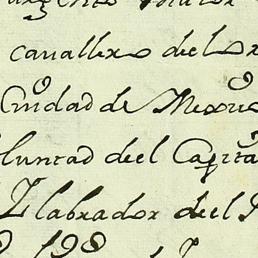 cavallero del
Ciudad de Mexico
luntad del Capita
Labrador del
198